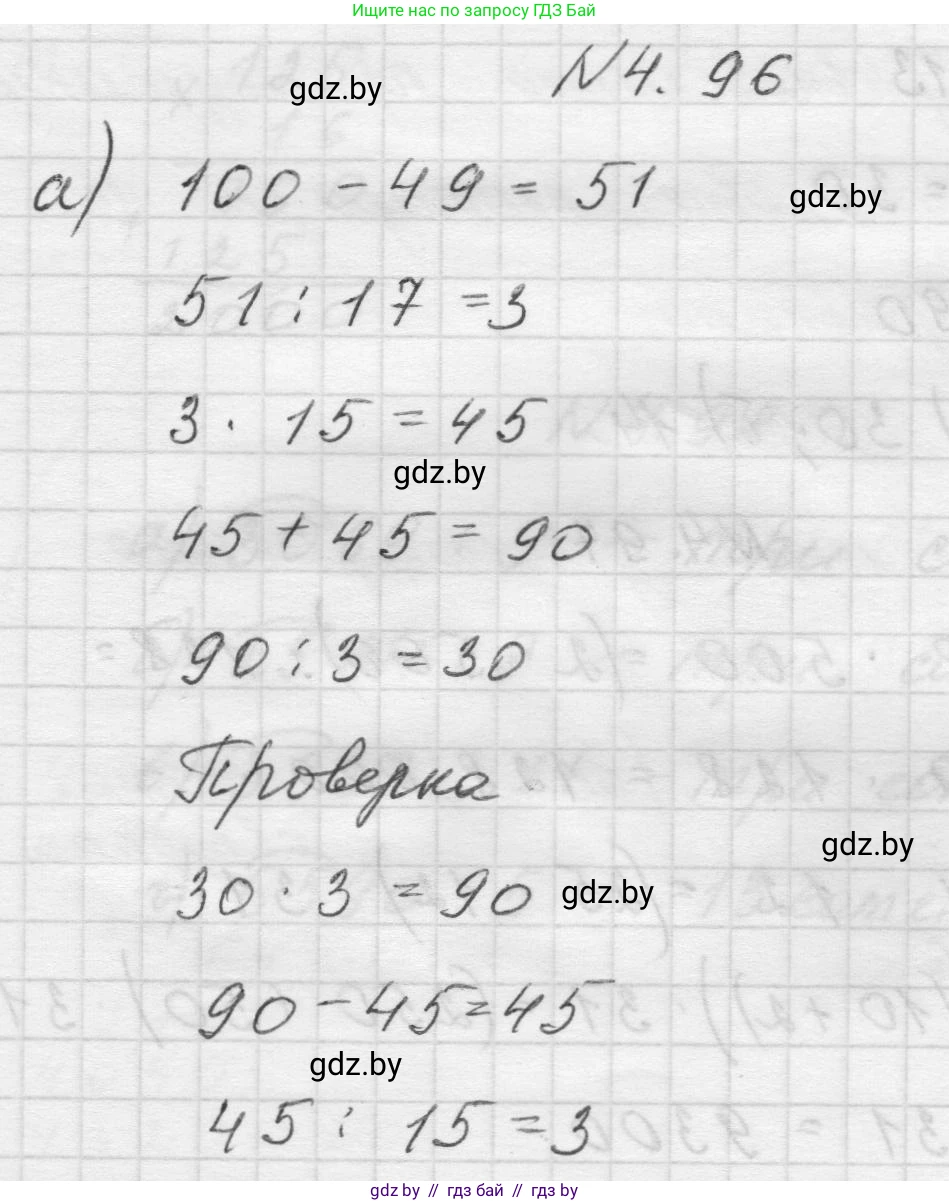 Ищите нас по запросу ГДЗ Бай
gdz.by
№4. 96
а) 100 - 49 = 51
gdz.by
51 : 17 = 3
3 · 15 = 45
gdz.by
45 + 45 = 90
90 : 3 = 30
Проверка
gdz.by
30 · 3 = 90
gdz.by
90 - 45 = 45
gdz.by
45 : 15 = 3
gdz.by // гдз бай // gdz by